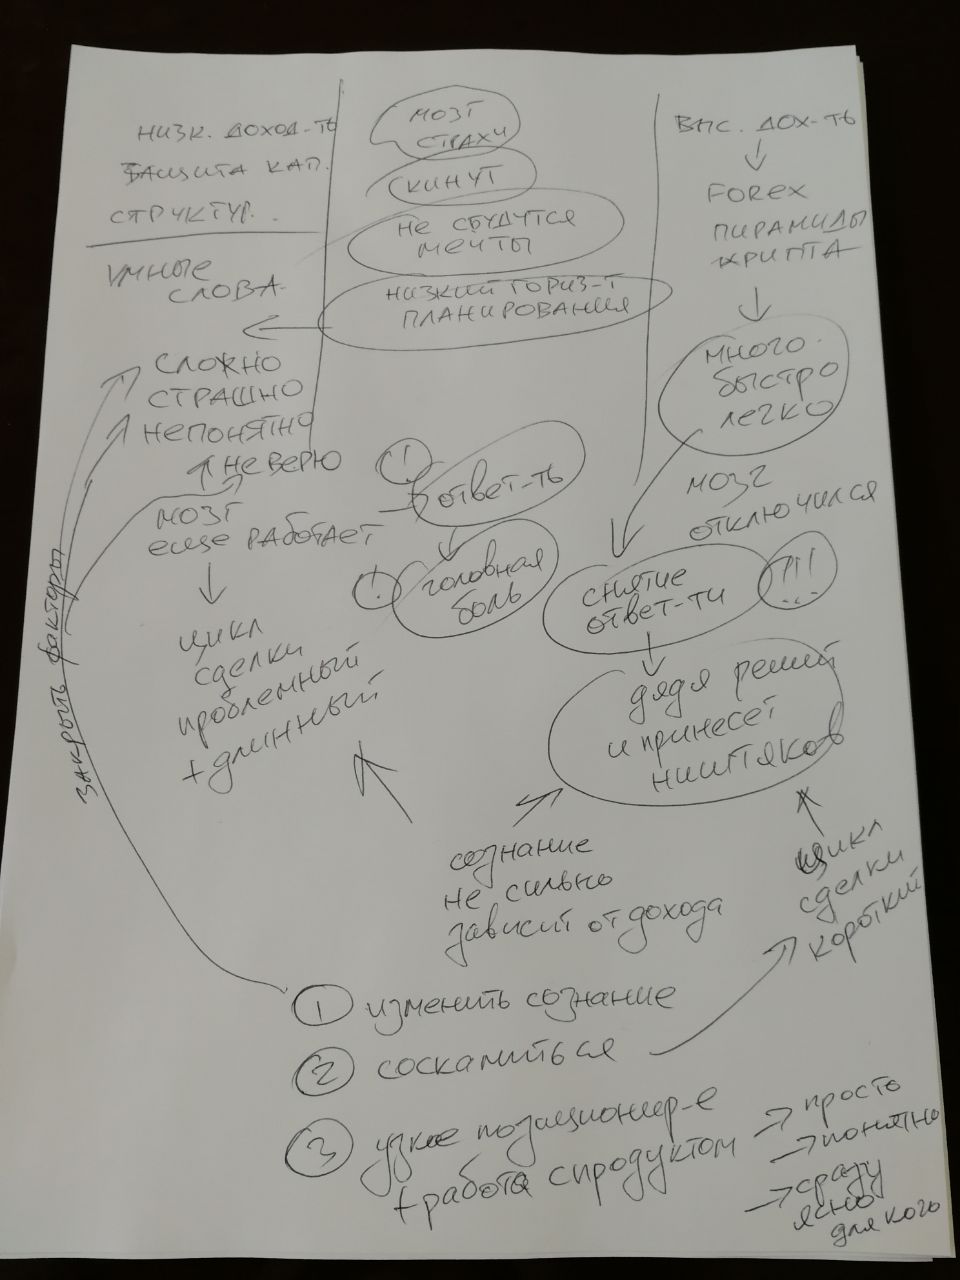 НИЗК. ДОХОД-ТЬ
ЗАЩИТА КАП.
СТРУКТУР...
УМНЫЕ
СЛОВА
СЛОЖНО
СТРАШНО
НЕПОНЯТНО
НЕ ВЕРЮ
МОЗГ
ЕЩЕ РАБОТАЕТ
ЦИКЛ
СДЕЛКИ
проблемный
+ длинный
закрыть факторы
МОЗГ
СТРАХИ
КИНУТ
НЕ СБУДУТСЯ
МЕЧТЫ
НИЗКИЙ ГОРИЗ-Т
ПЛАНИРОВАНИЯ
!
ответ-ть
!
головная
боль
ВЫС. ДОХ-ТЬ
FOREX
ПИРАМИДЫ
КРИПТА
много
быстро
легко
МОЗГ
ОТКЛЮЧИЛСЯ
СНЯТИЕ
ОТВЕТ-ТИ
!!!
дядя решит
и принесет
ништяков
сознание
не сильно
зависит от дохода
цикл
сделки
короткий
1 изменить сознание
2 соскамиться
3 узкое позиционир-е
+ работа с продуктом
просто
понятно
сразу
ясно
для кого